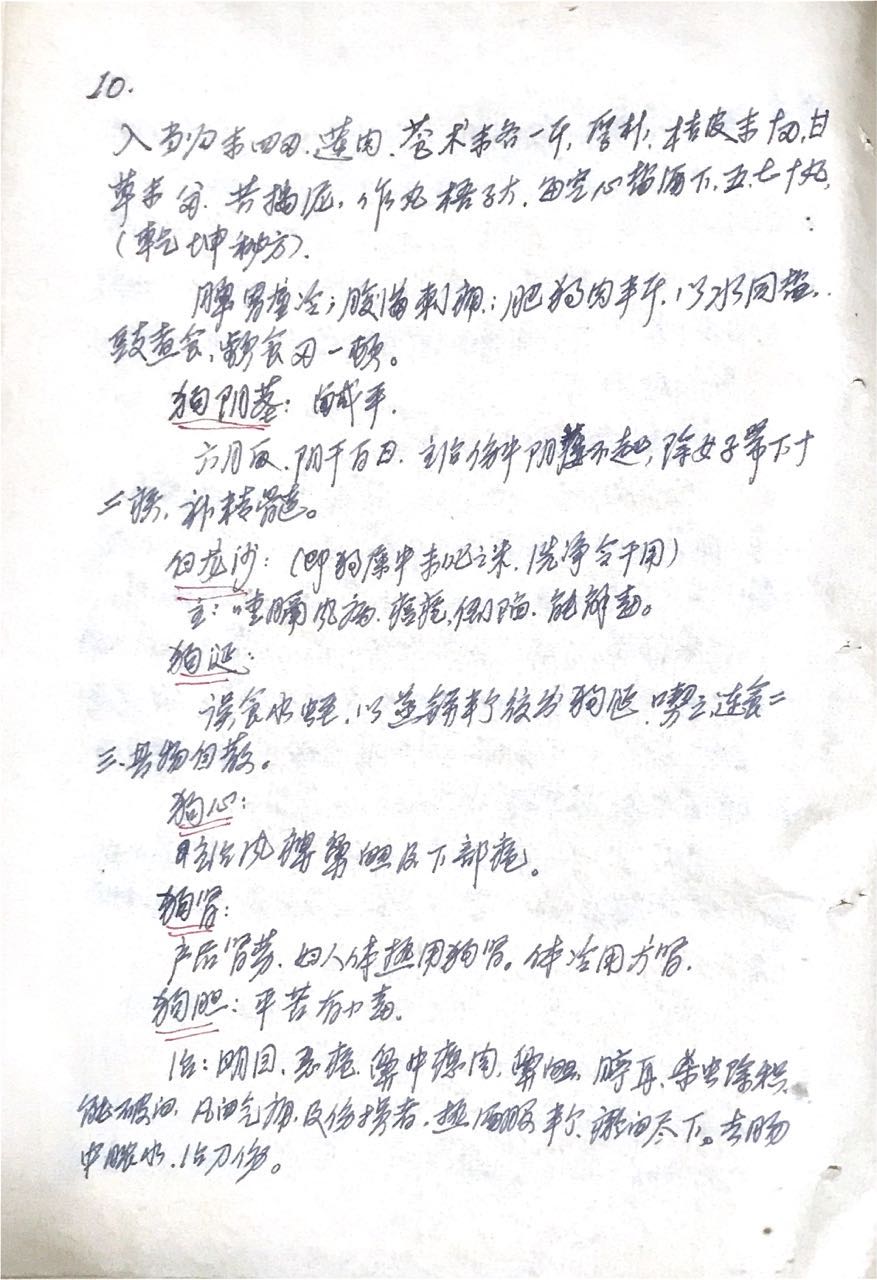 10.
入当归末四两、莲肉、苍术末各一斤，厚朴、桔皮末十两，甘
草末 两，共捣泥，作丸梧子大，每空心盐酒下，五、七十丸，
（乾坤秘方）.
脾胃虚冷；腹满刺痛：肥狗肉半斤，以水同盐、
豉煮食，频食 一顿。
狗阴茎：咸平.
六月取、阴干百日、主治伤中阴萎不起，除女子带下十
二疾，补精髓。
白龙沙：（即狗屎中未化之米，洗净 干用）
主：噎膈风病、痘疮，倒陷、能解毒。
狗涎：
误食水蛭，以蒸饼半个绞出狗涎，喫之，连食二
三、其物自散。
狗心：
主治风痹鼻衄及下部疮。
狗肾：
产后肾劳、妇人体热用狗肾。体冷用 肾.
狗胆：平苦有小毒.
治：明目、恶疮、鼻中瘜肉，鼻衄、聤耳、杀虫除积，
能破血，凡血气痛，及伤损者，热酒服半个、瘀血尽下。去肠
中脓水、治刀伤。